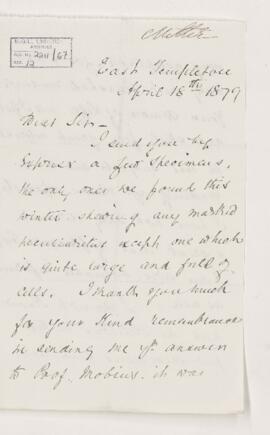 East Templeton
April 18th 1879
Dear Sir -
I send you by
express a few specimens,
the only ones we found this
winter shewing any marked
peculiarities except one which
is quite large and full of
cells. I thank you much
for your kind remembrance
in sending me yr answer
to Prof. Mobius. it was